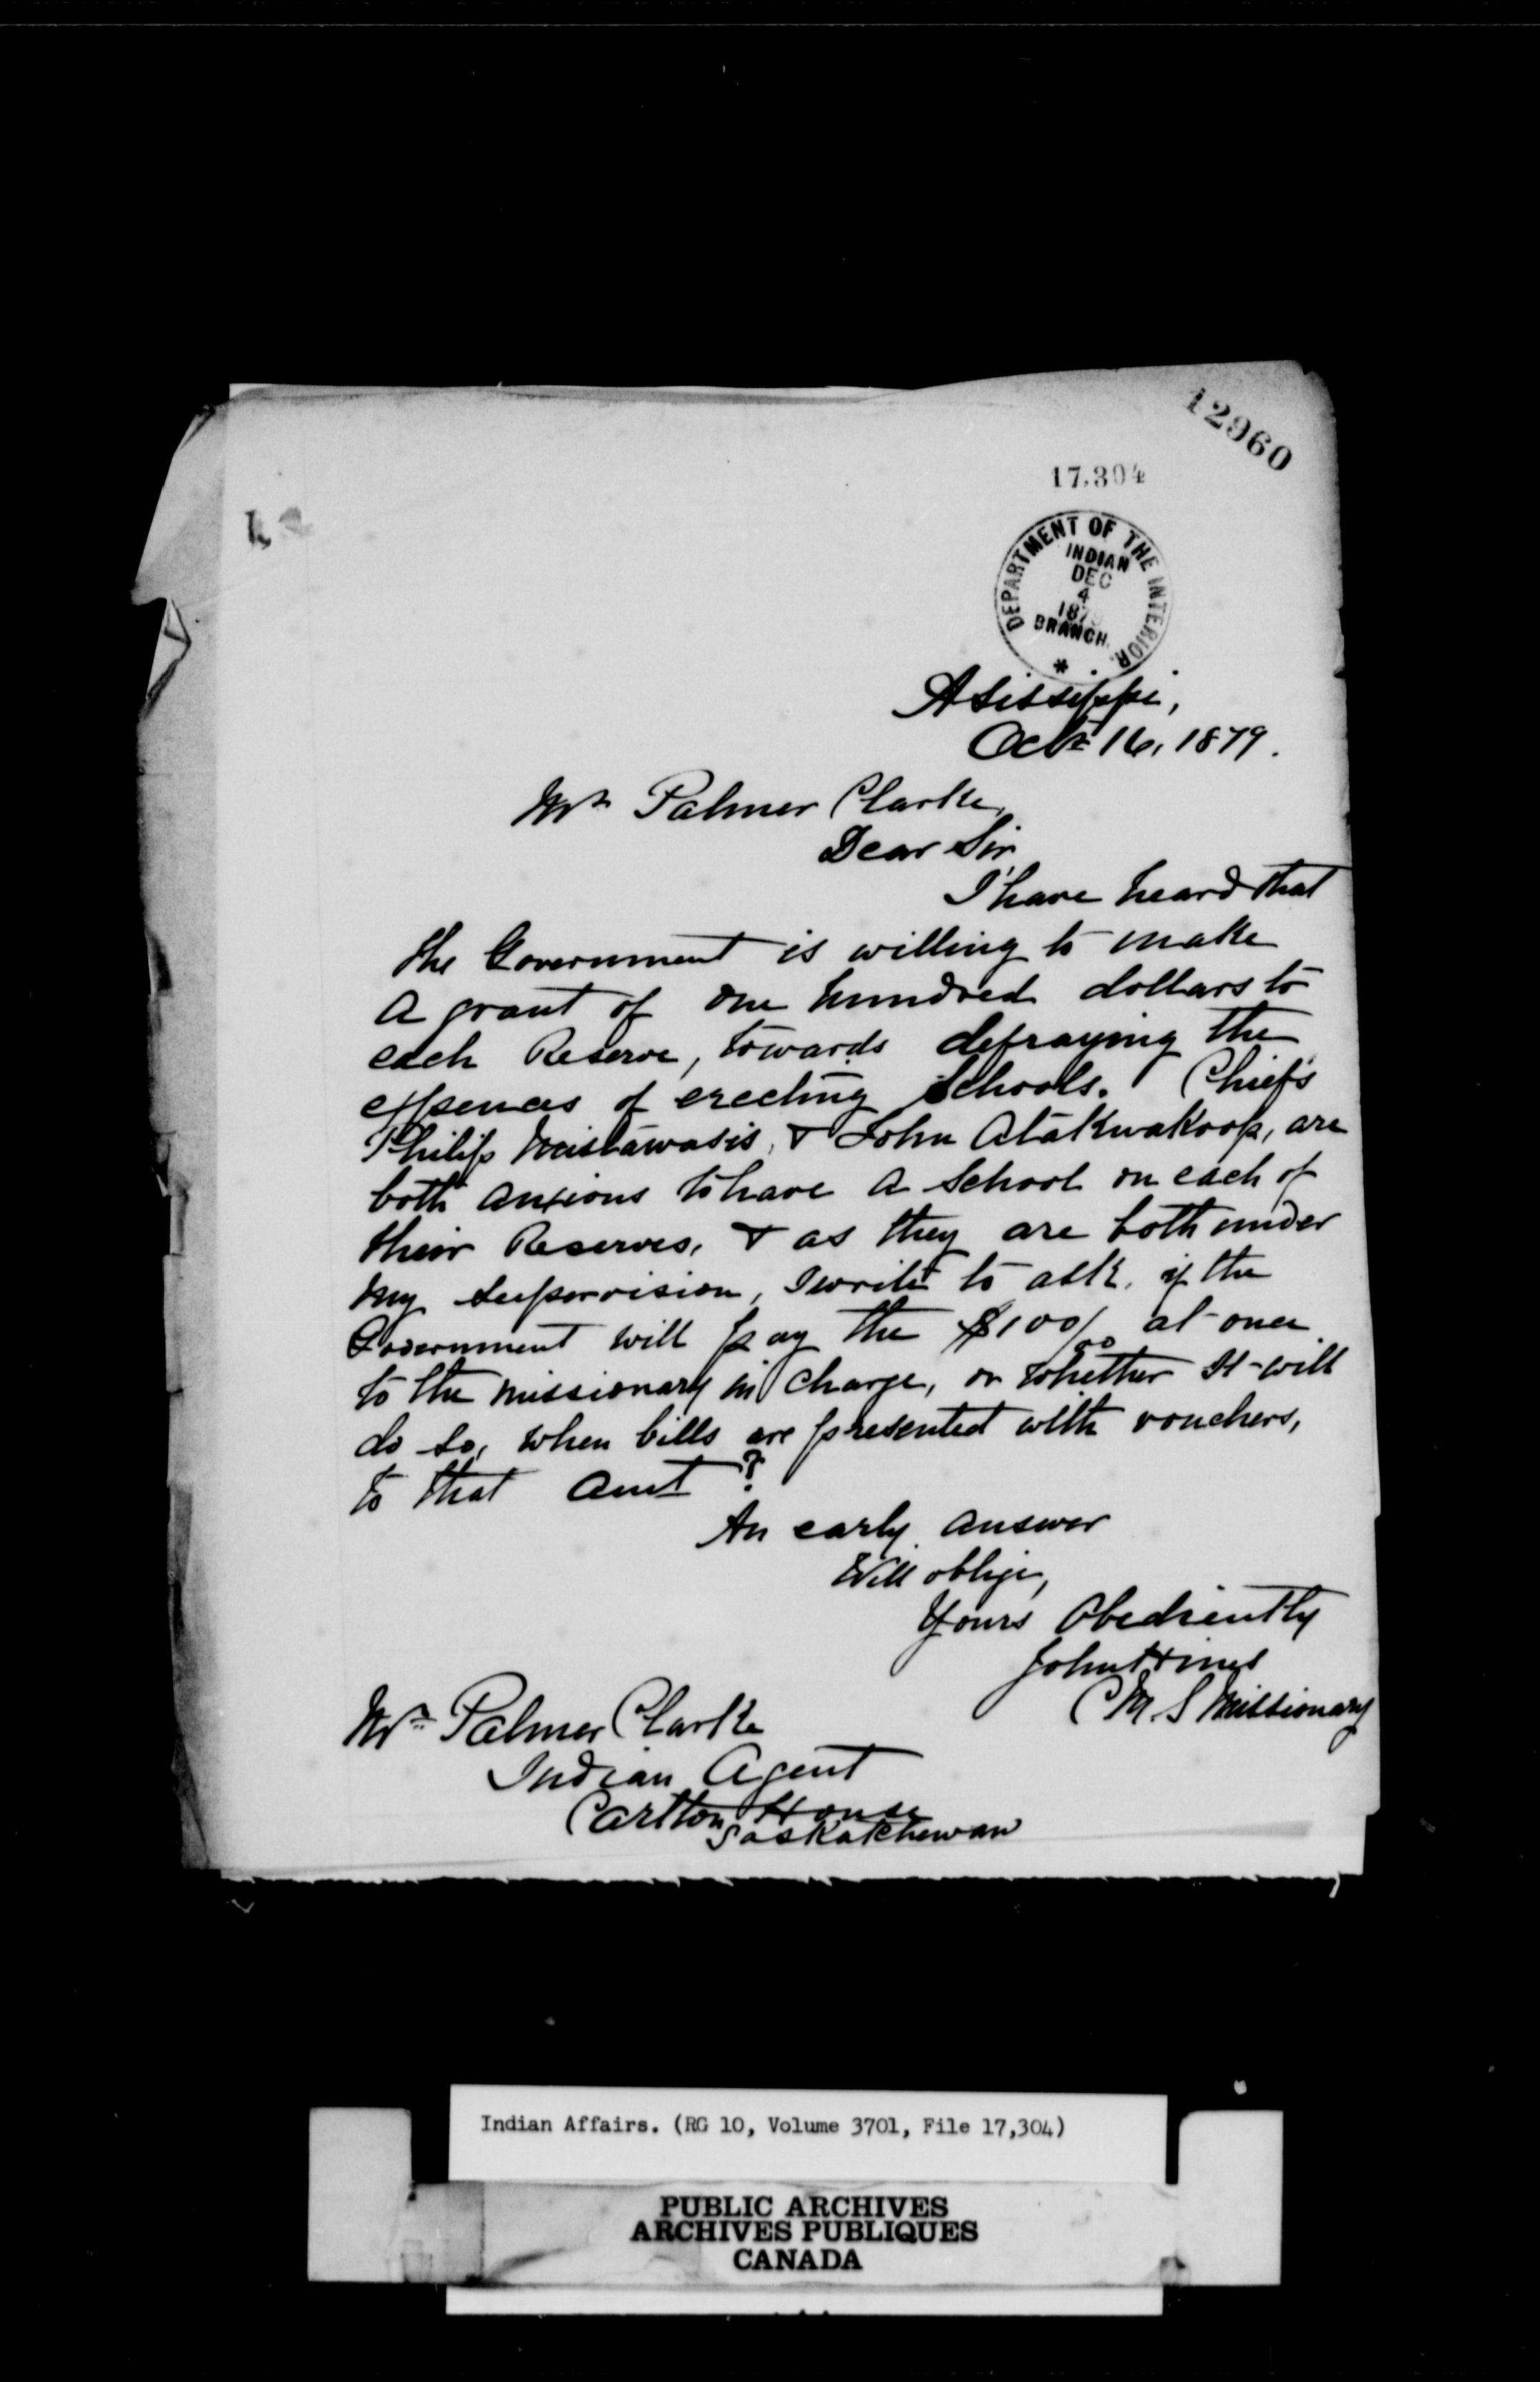 12960
17,304
DEPARTMENT OF THE INTERIOR.
INDIAN
DEC
4
187
BRANCH.
Asissippi,
Oct 16, 1879.
Mr Palmer Clarke,
Dear Sir,
I have heard that
the Government is willing to make
a grant of one hundred dollars to
each Reserve, towards defraying the
expences of erecting schools. Chiefs
Philip Mistawasis, & John Atakwakoop, are
both anxious to have a school on each of
their Reserves, & as they are both under
my supervision, I write to ask, if the
Government will pay the $100/00 at once
to the missionary in charge, or whether it will
do so, when bills are presented with vouchers,
to that amt?
An early answer
Will oblige,
Yours Obediently
John Hines
C M. S Missionary
Mr Palmer Clarke
Indian Agent
Carlton House
Saskatchewan
Indian Affairs. (RG 10, Volume 3701, File 17,304)
PUBLIC ARCHIVES
ARCHIVES PUBLIQUES
CANADA